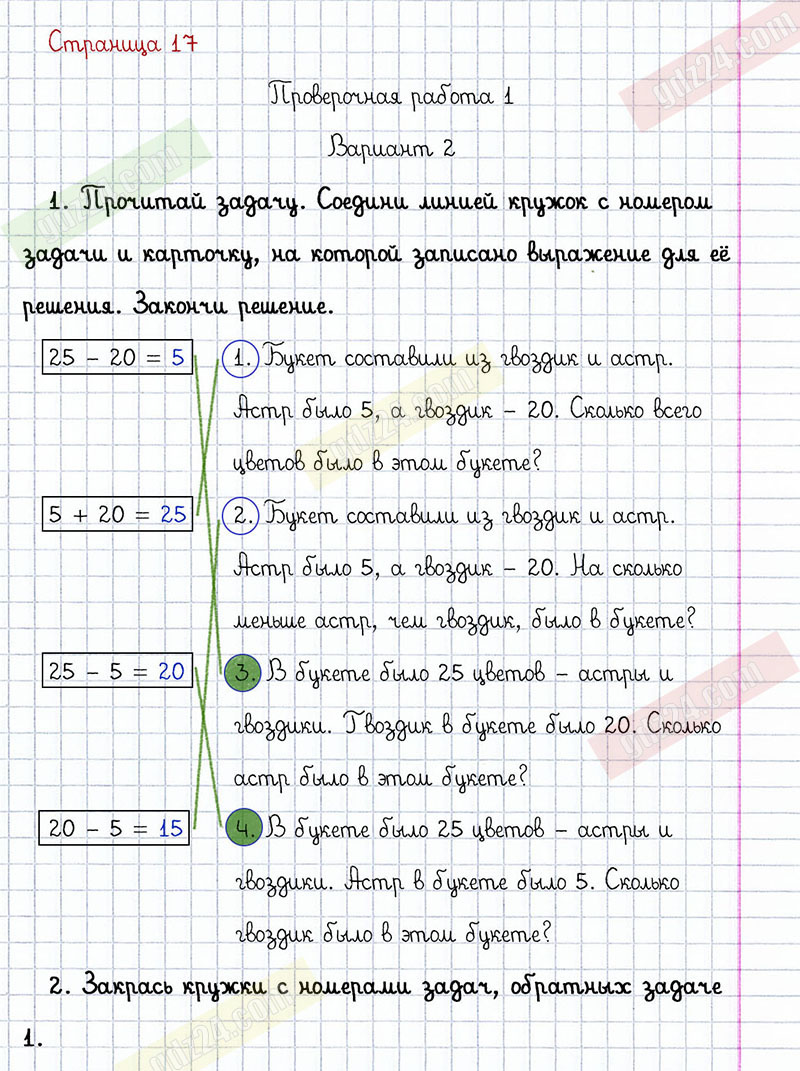 Страница 17
Проверочная работа 1
Вариант 2
1. Прочитай задачу. Соедини линией кружок с номером
задачи и карточку, на которой записано выражение для её
решения. Закончи решение.
25 – 20 = 5
1. Букет составили из гвоздик и астр.
Астр было 5, а гвоздик – 20. Сколько всего
цветов было в этом букете?
5 + 20 = 25
2. Букет составили из гвоздик и астр.
Астр было 5, а гвоздик – 20. На сколько
меньше астр, чем гвоздик, было в букете?
25 – 5 = 20
3. В букете было 25 цветов – астры и
гвоздики. Гвоздик в букете было 20. Сколько
астр было в этом букете?
20 – 5 = 15
4. В букете было 25 цветов – астры и
гвоздики. Астр в букете было 5. Сколько
гвоздик было в этом букете?
2. Закрась кружки с номерами задач, обратных задаче
1.
gdz24.com
gdz24.com
gdz24.com
gdz24.com
gdz24.com